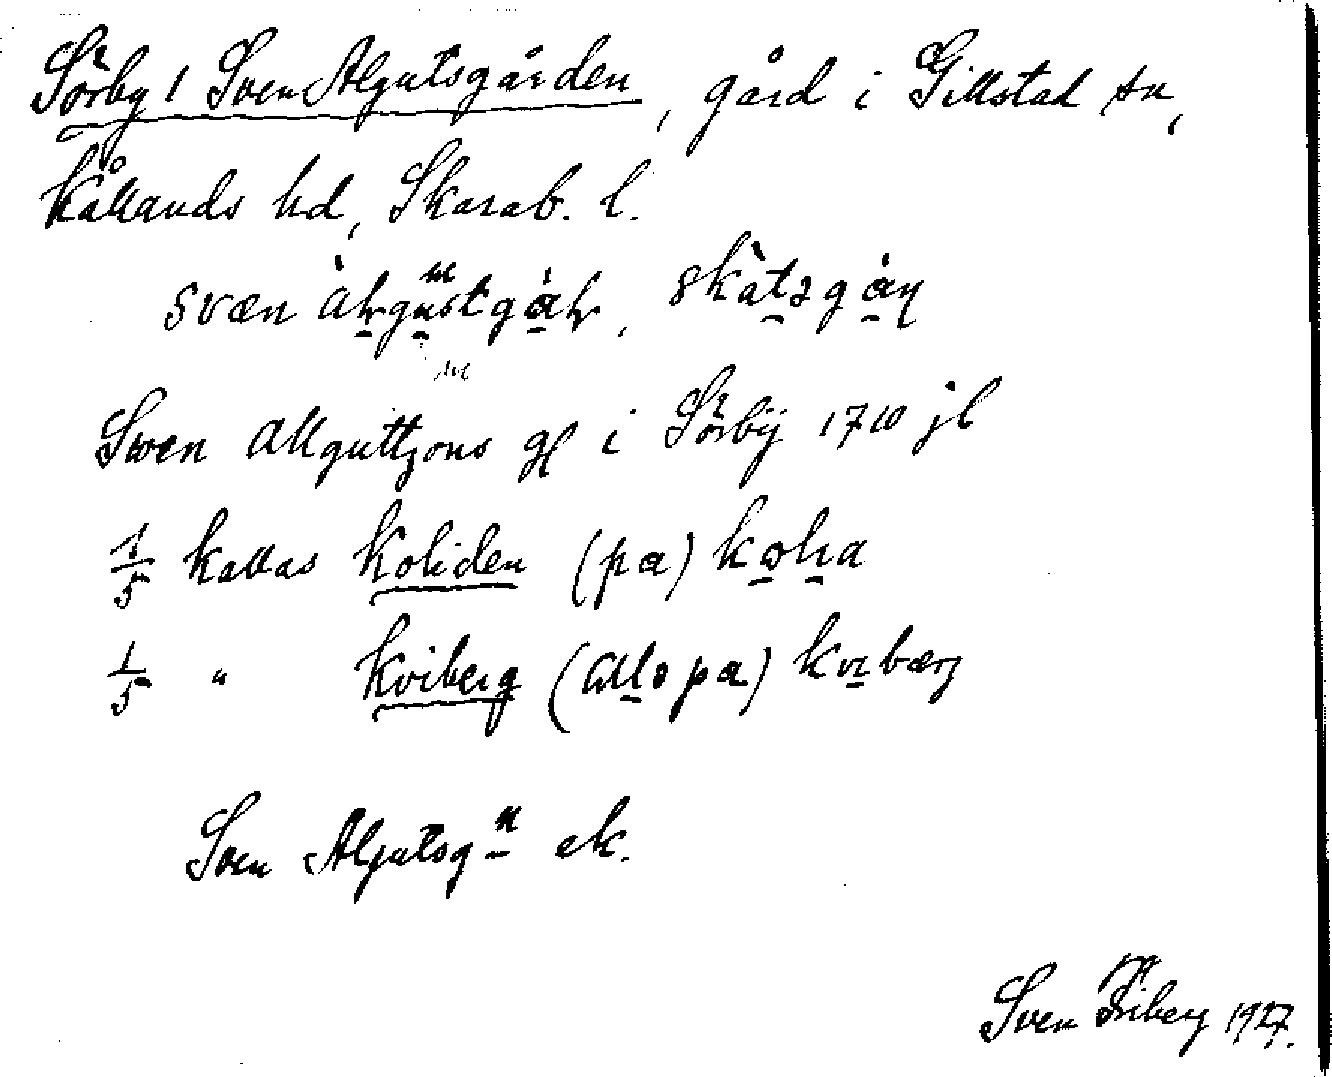 Sörby 1 Sven Algutsgården, gård i Gillstad sn,
Kållands hd, Skarab. l.
svæn
Swen Allguttzons i Sörbÿ 1710 jb
1/5 kallas Koliden (pa) kolıa
1/5 " Kviberg (pa) kvıbærj
Sven Algutsgn ek.
Sven Friberg 1927.